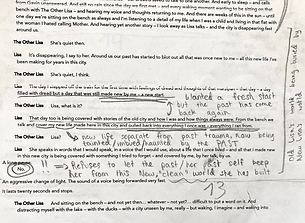 from Gavin unanswered. And still no rain
to talk to one another. And early to sleep – and calls
bench with The Other Lisa – and hearing my voice and thoughts returning to me. And there are weeks of this in the sun – until
one day we're sitting on the bench as always and I'm listening to a detail of my life when I was a child and living in that flat with
the woman I hated calling Mother. And hearing yet another story – I look away as Lisa talks – and the city is disappearing fast
around us.
The Other Lisa She's quiet then.
Lisa It's disappearing, I say to her. Around us our past has started to blot out all that was once new to me – all this new life I've
been making for years in this city.
The Other Lisa She's quiet, I think.
Lisa The day I stopped off the train for the first time with feelings of dread and thoughts of that
filled with dread but a day that was still made new by me – a new start.
wanted a fresh start
The Other Lisa Lisa, what is it?
but the past has come
back again.
Lisa That day too is being covered with stories of the old city and how I was and how things always were. From the bench we
talk and cover my new life made here in this city and outwit back into everything I once was – everything I ran from.
The Other Lisa Lisa?
new life separate from past trauma, now being
tainted/imbued/haunted by the PAST
Old Lisa's world being buried by
New Lisa's world
Lisa She speaks in words that I would speak, in words that I would use, about a life we once lived – and all that I made new
in this new city is being covered with something I tried to forget – and covered by me, by her talk, by us.
A long
No.
!! → Refuses to let the past / her past self seep
her from this New, "clean" world she has built
An aggressive change of light. The sound of a voice being forwarded very fast.
13
It lasts twenty seconds and stops.
The Other Lisa And sitting on the bench – and not yet then... whatever – not yet?... difficult to put a word on it. And
distracting myself with the lake – with the ducks – with a city unseen by me, really – but waking, I imagine – and waking into